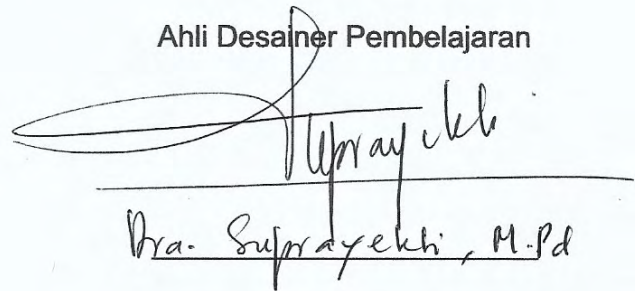 Ahli Desainer Pembelajaran
Suprayekti
Dra. Suprayekti, M.Pd